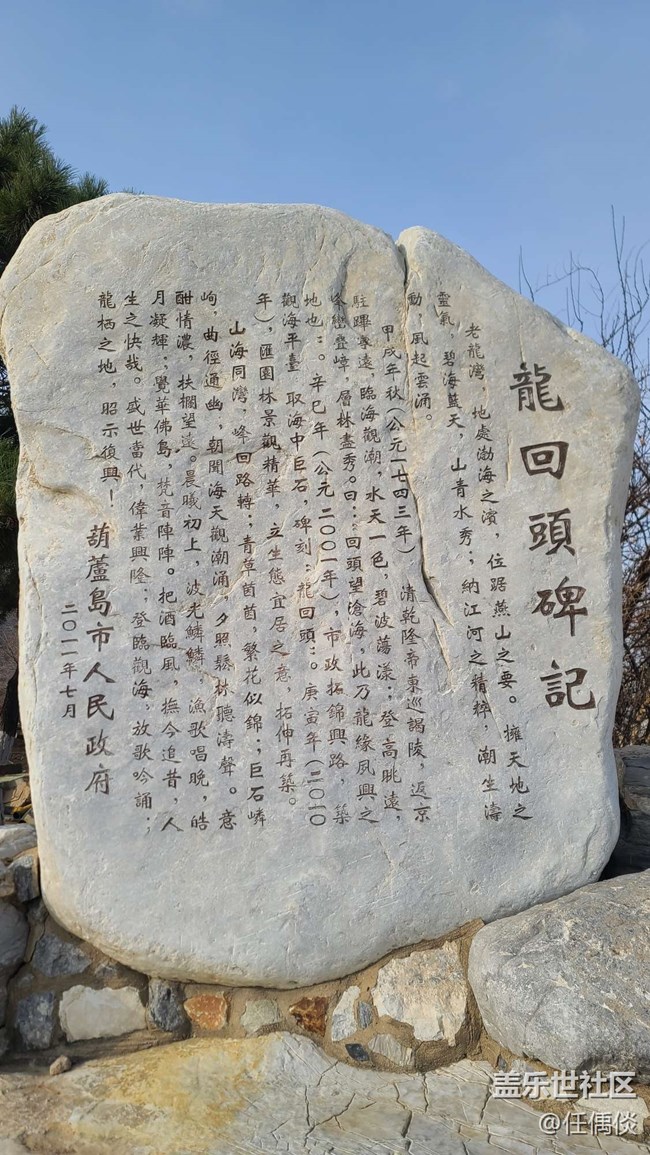 龍回頭碑記
老龍灣，地處渤海之濱，位踞燕山之要。擁天地之
靈氣，碧海藍天，山青水秀；納江河之精粹，潮生濤
動，風起雲涌。
甲戌年秋（公元一七四三年）清乾隆帝東巡謁陵，返京
駐蹕寧遠，臨海觀潮，水天一色，碧波蕩漾；登高眺遠，
峰巒疊嶂，層林盡秀。曰：“回頭望滄海，此乃龍緣風興之
地也”。辛巳年（公元二〇〇一年），市政拓錦興路，築
觀海平臺，取海中巨石，碑刻“龍回頭”。庚寅年（二〇一〇
年），匯園林景觀精華，立生態宜居之意，拓伸再築。
山海同灣，峰回路轉；青草茵茵，繁花似錦；巨石嶙
峋，曲徑通幽，朝聞海天觀潮涌，夕照懸林聽濤聲。意
酣情濃，扶欄望遠。晨曦初上，波光鱗鱗，漁歌唱晚，皓
月凝輝；覺華佛島，梵音陣陣。把酒臨風，撫今追昔，人
生之快哉。盛世當代，偉業興隆；登臨觀海，放歌吟誦；
龍栖之地，昭示復興！
葫蘆島市人民政府
二〇一一年七月
盖乐世社区
@任偊倓